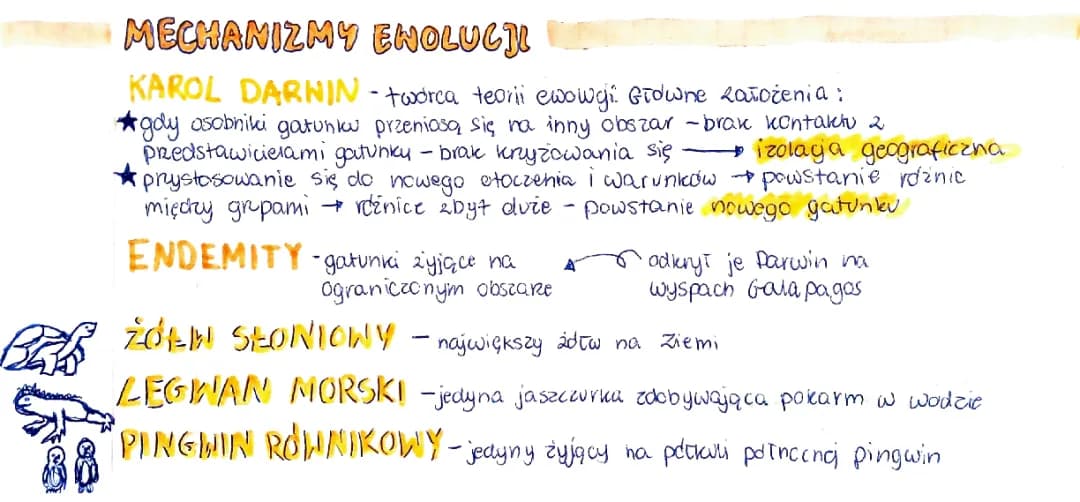 MECHANIZMY EWOLUCJI
KAROL DARWIN - twórca teorii ewolucji. Główne założenia:
★gdy osobniki gatunku przeniosą się na inny obszar - brak kontaktu z
przedstawicielami gatunku - brak krzyżowania się → izolacja geograficzna
★prystosowanie się do nowego otoczenia i warunków → powstanie różnic
między grupami → różnice zbyt duże - powstanie nowego gatunku
ENDEMITY - gatunki żyjące na odkrył je Darwin na
ograniczonym obszarze wyspach Galapagos
ŻÓŁW SŁONIOWY - największy żółw na Ziemi
LEGWAN MORSKI - jedyna jaszczurka zdobywająca pokarm w wodzie
PINGWIN RÓWNIKOWY - jedyny żyjący na półkuli północnej pingwin